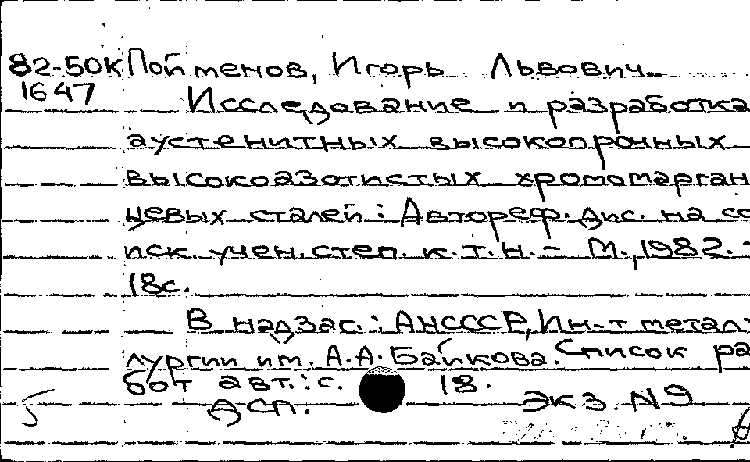 82-50К Пойменов, Игорь Львович.
1647
Исследование и разработка
аустенитных высокопрочных
высокоазотистых хромомарган
цевых сталей: Автореф. дис. на со
иск. учен. степ. к.т.н. - М., 1982. -
18с.
В надзаг.: АНСССР, Ин-т метал-
лургии им. А.А. Байкова. Список ра
бот авт.: с. 18.
ДСП. Экз. №9